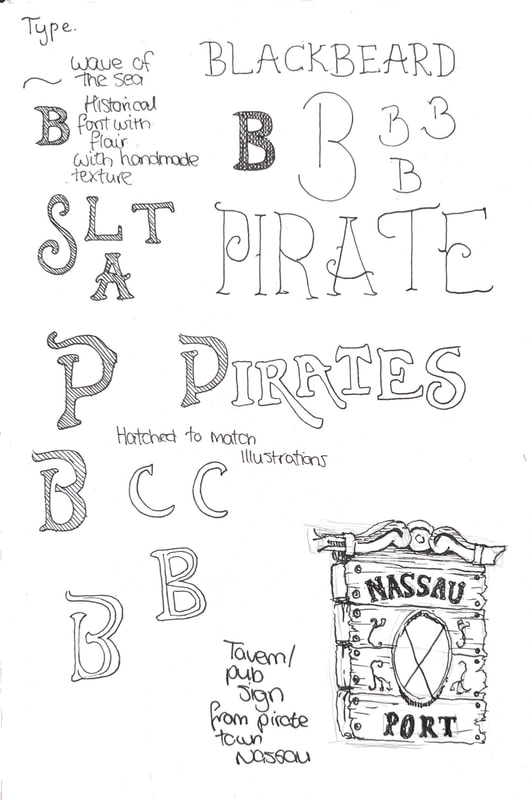 Type.
wave of
the sea
BLACKBEARD
B
Historical
font with
flair
with handmade
texture
B B B B
B
S L T
A
PIRATE
P PIRATES
Hatched to match
Illustrations
B C C
B
B
NASSAU
PORT
Tavern/
pub
sign
from pirate
town
Nassau